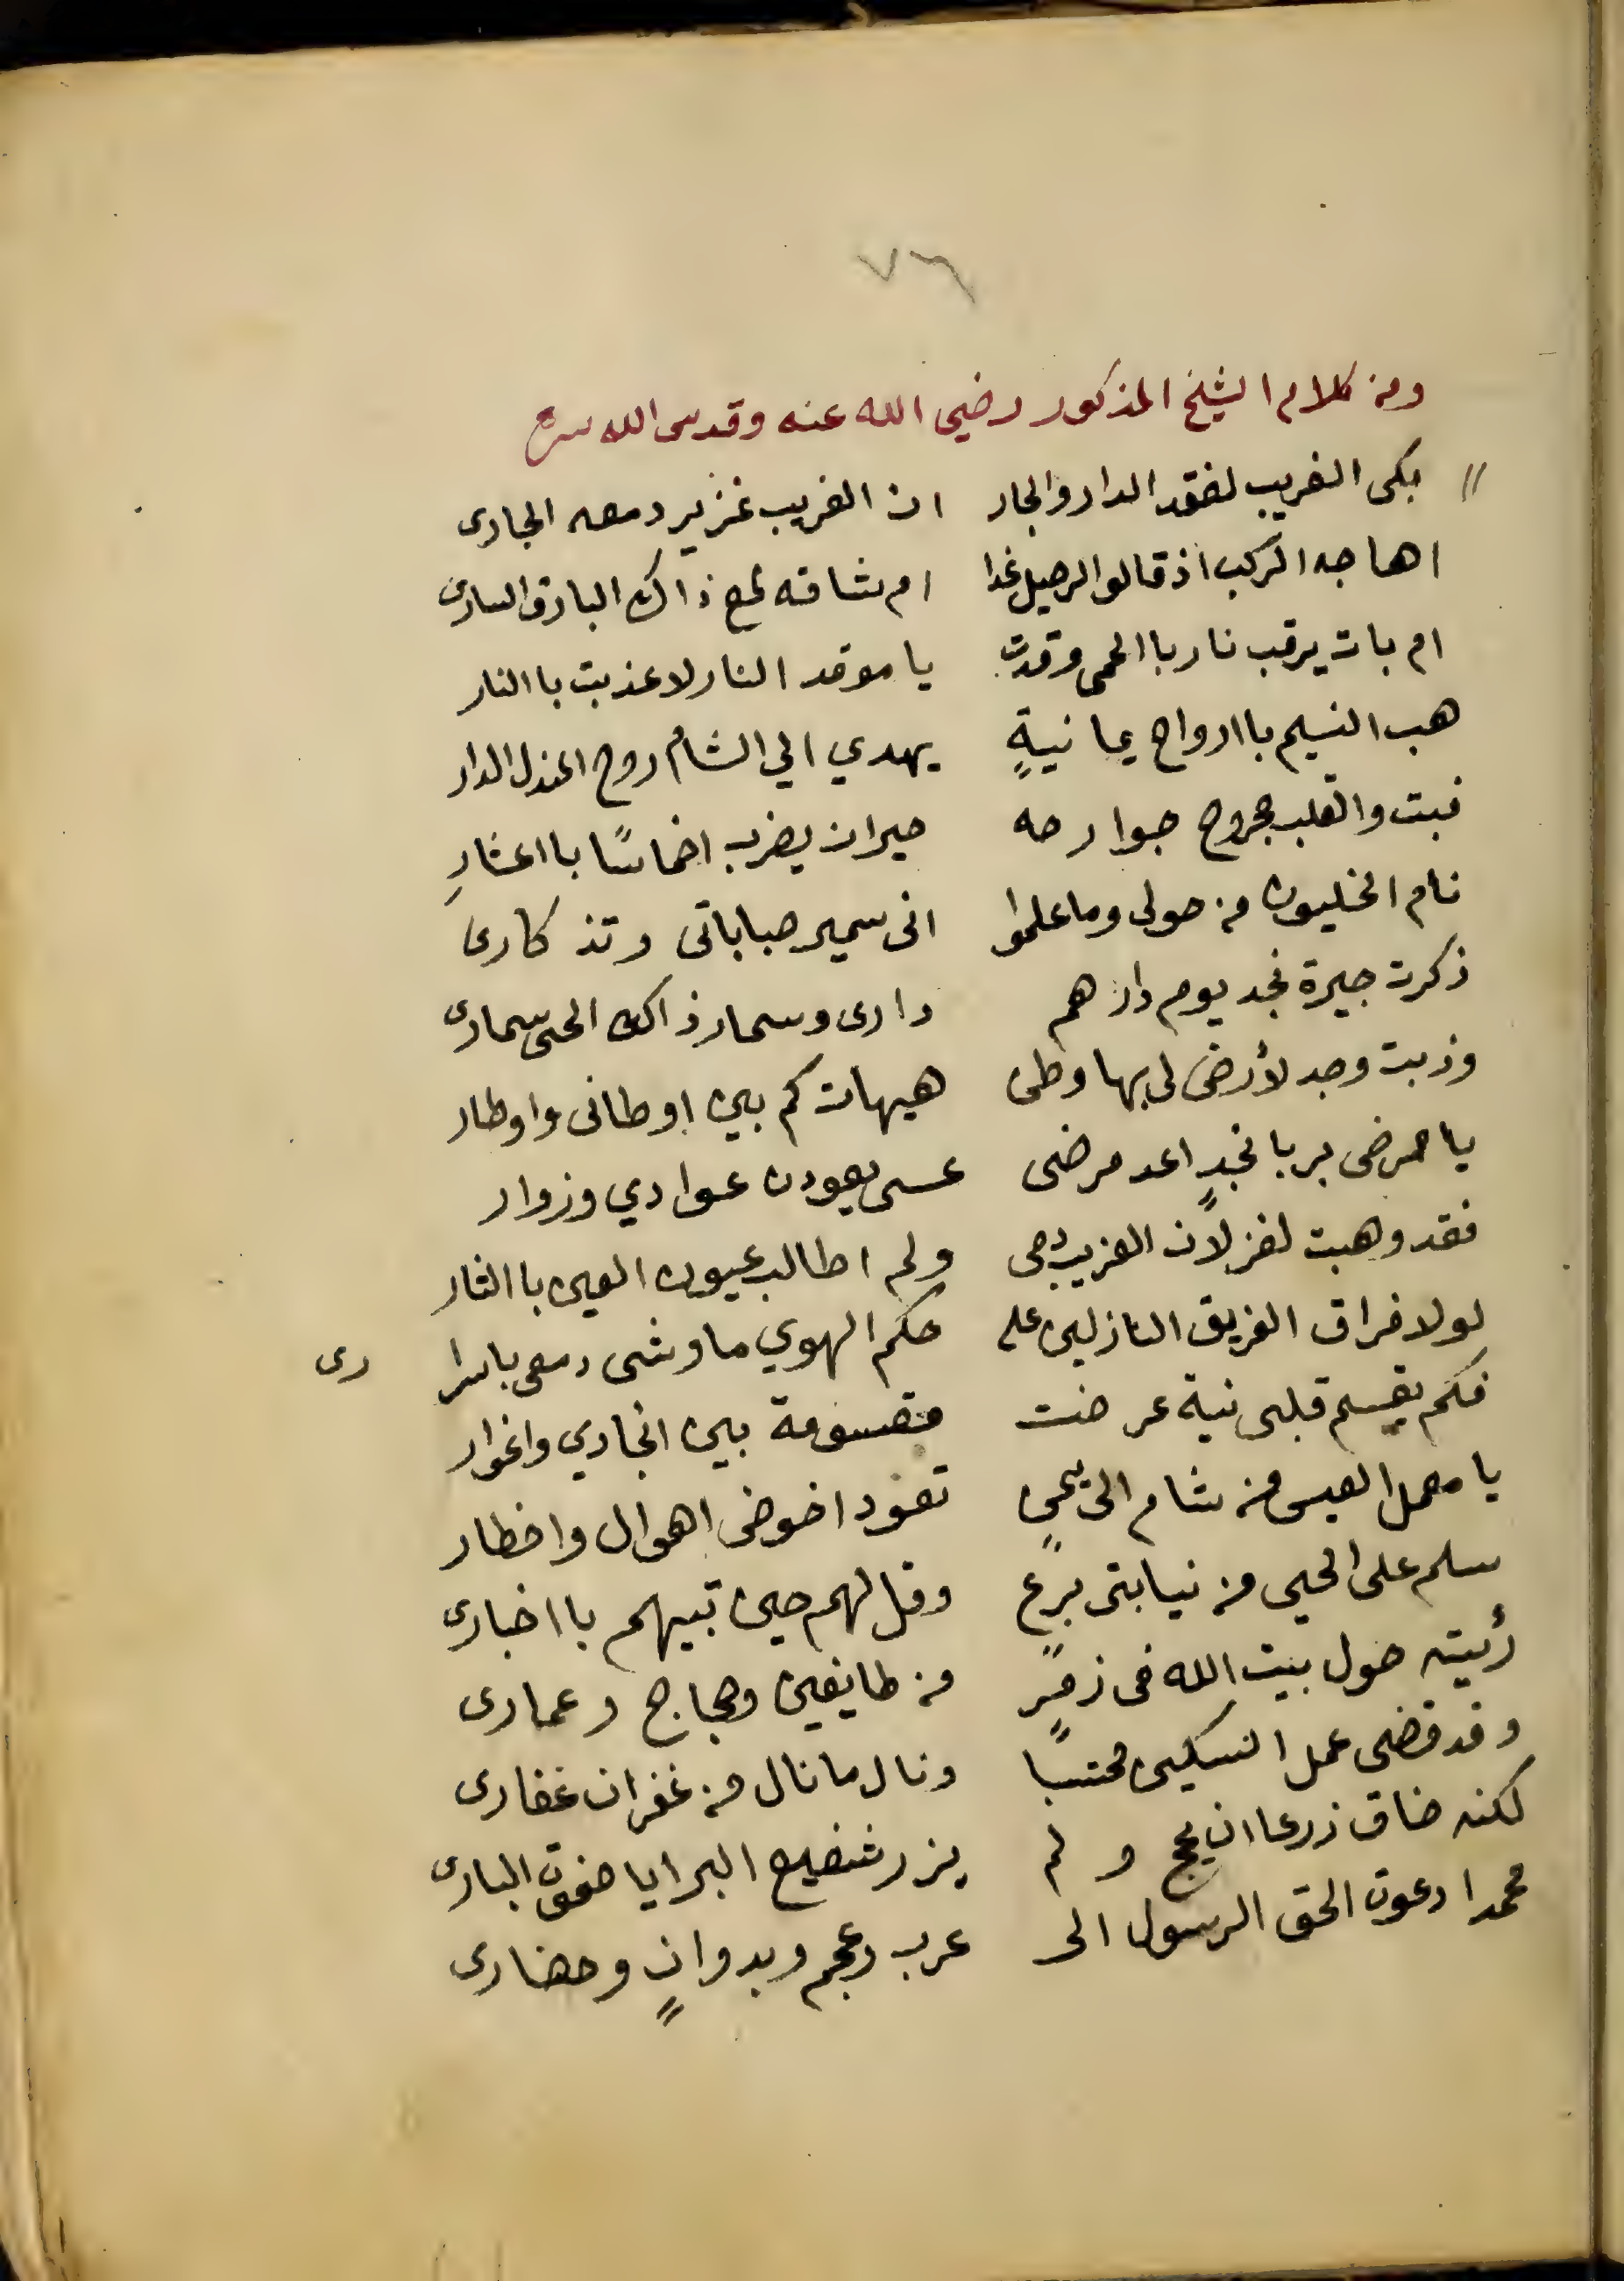 ٧٦
ومن كلام الشيخ المذكور رضي الله عنه وقدس الله سره
بكى الغريب لفقد الدار والجار ان الغريب غزير دمعه الجارى
اهاجه الركب اذ قالوا الرحيل غدا ام شاقه لمع ذاك البارق السارى
ام بات يرقب نار باالحمى وقدت يا موقد النار لا عذبت باالنار
هب النسيم باارواح يمانيةٍ يهدي الي الشام روح المندل الدار
فبت والقلب مجروح جوارحه حيران يضرب اخماسًا بااعشارِ
نام الخليون من حولى وما علموا انى سمير صباباتى وتذكارى
ذكرت جيرة نجد يوم دارهم دارى وسمار ذاك الحى سمارى
وذبت وجد لأرض لى بها وطن هيهات كم بين اوطانى واوطار
يا ممرضى بربا نجدٍ اعد مرضى عسى يعودن عوادي وزوار
فقد وهبت لغزلان الغريب دمى ولم اطالب عيون العين باالثار
لولا فراق الفريق النازلين على حكم الهوي ما وشى دمعى باسرا رى
فكم يقسم قلبى نية عرضت مقسومة بين انجادي واغوار
يا معمل العيس من شام الى يمنٍ تقود اخوض اهوال واخطار
سلم على الحى من نيابتى برع وقل لهم حين تبيهم بااخبارى
رئيته حول بيت الله فى زمرٍ من طايفين وحجاج وعمارى
وقد قضى عمل النسكين محتسبًا ونال ما نال من غفران غفارى
لكنه ضاق ذرعا ان يحج ولم يزر شفيع البرايا صفوة البارى
محمدا دعوة الحق الرسول الى عرب وعجم وبدوانٍ وحضارى